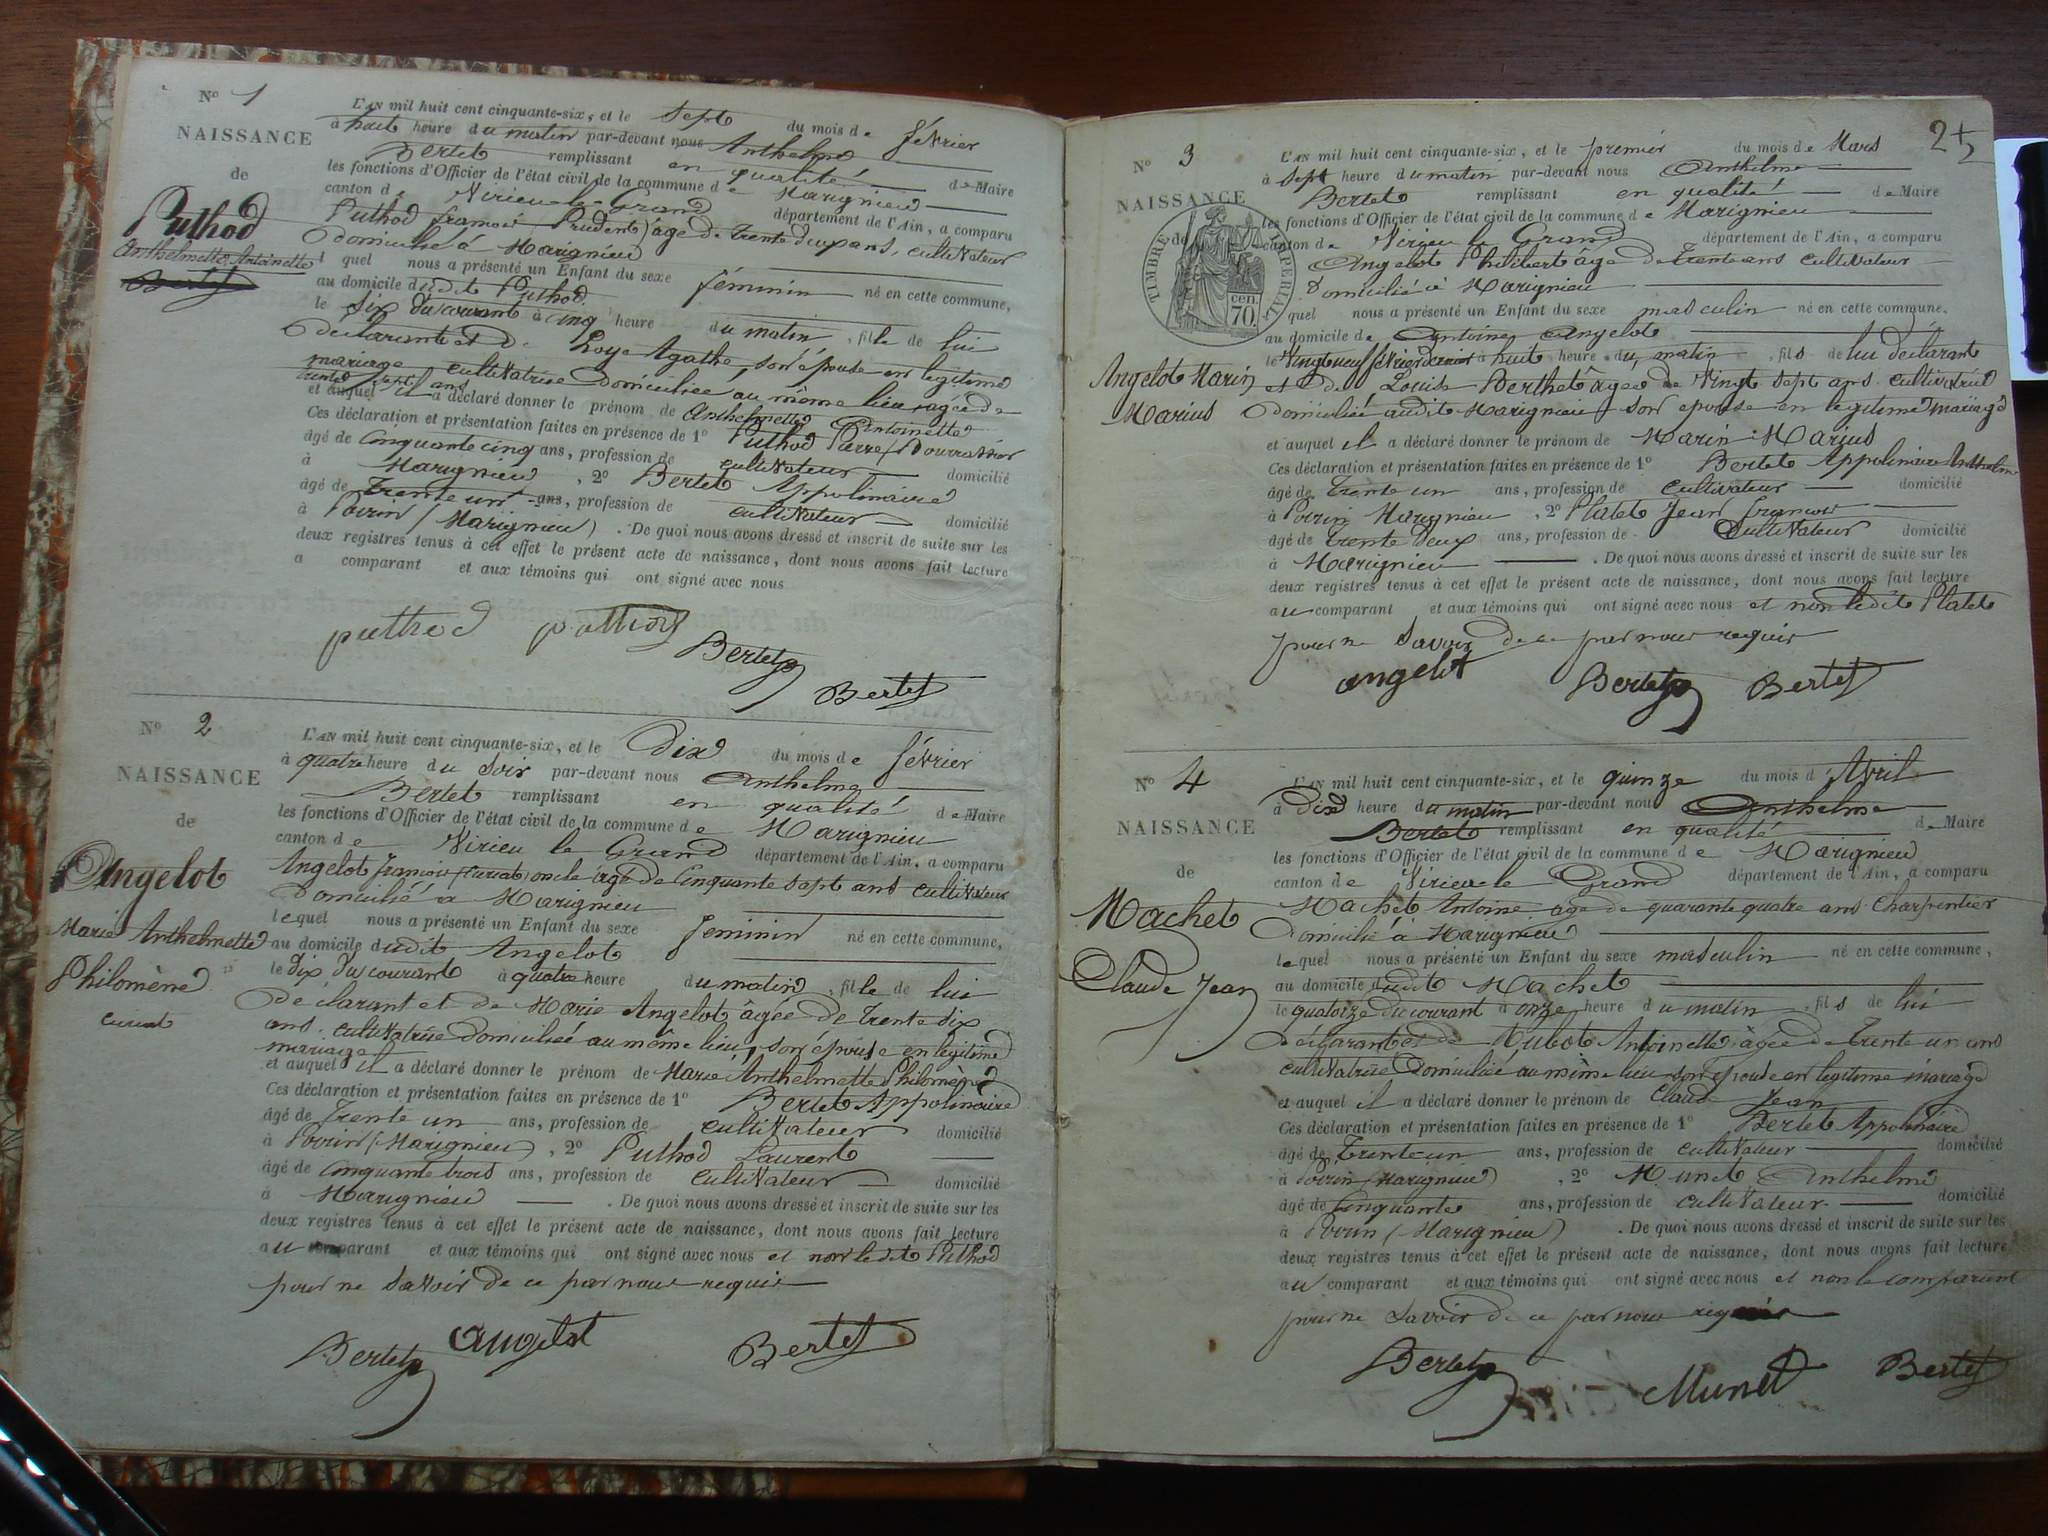 N° 1
NAISSANCE
de
Puthod
Anthelmette Antoinette
Bertet
L'AN mil huit cent cinquante-six, et le sept du mois de février
à huit heure du matin par-devant nous Anthelme
Bertet remplissant en qualité de Maire
les fonctions d'Officier de l'état civil de la commune de Marignieu
canton de Virieu le Grand département de l'Ain, a comparu
Puthod françois (Prudent) âgé de trente deux ans, cultivateur
domicilié à Marignieu
l quel nous a présenté un Enfant du sexe féminin né en cette commune,
au domicile dudit Puthod
le six du courant à cinq heure du matin, fille de lui
déclarant et de Roye Agathe, son épouse en légitime
mariage cultivatrice domiciliée au même lieu, agée de
trente sept ans
et auquel il a déclaré donner le prénom de Anthelmette Antoinette
Ces déclaration et présentation faites en présence de 1° Puthod Pierre
âgé de Cinquante cinq ans, profession de cultivateur domicilié
à Marignieu, 2° Bertet Appolinaire
âgé de trente un ans, profession de cultivateur domicilié
à Poirin (Marignieu). De quoi nous avons dressé et inscrit de suite sur les
deux registres tenus à cet effet le présent acte de naissance, dont nous avons fait lecture
a comparant et aux témoins qui ont signé avec nous
puthod puthod
Bertet
Bertet
N° 2
NAISSANCE
de
Angelot
Marie Anthelmette
Philomène
curiat
L'AN mil huit cent cinquante-six, et le Dix du mois de février
à quatre heure du soir par-devant nous Anthelme
Bertet remplissant en qualité de Maire
les fonctions d'Officier de l'état civil de la commune de Marignieu
canton de Virieu le Grand département de l'Ain, a comparu
Angelot françois (curiat) oncle âgé de Cinquante sept ans cultivateur
Domicilié à Marignieu
lequel nous a présenté un Enfant du sexe féminin né en cette commune,
au domicile dudit Angelot
le dix du courant à quatre heure du matin, fille de lui
déclarant et de Marie Angelot âgée de trente dix
ans. cultivatrice domiciliée au même lieu, son épouse en légitime
mariage
et auquel il a déclaré donner le prénom de Marie Anthelmette Philomène
Ces déclaration et présentation faites en présence de 1° Bertet Appolinaire
âgé de trente un ans, profession de cultivateur domicilié
à Poirin (Marignieu), 2° Puthod Laurent
âgé de Cinquante trois ans, profession de cultivateur domicilié
à Marignieu. De quoi nous avons dressé et inscrit de suite sur les
deux registres tenus à cet effet le présent acte de naissance, dont nous avons fait lecture
au comparant et aux témoins qui ont signé avec nous et non ledit Puthod
pour ne savoir de ce par nous requis
Bertet Angelot Bertet
2
N° 3
NAISSANCE
de
TIMBRE IMPERIAL
70 cen.
Angelot Marin
Marius
L'AN mil huit cent cinquante-six, et le premier du mois de Mars
à sept heure du matin par-devant nous Anthelme
Bertet remplissant en qualité de Maire
les fonctions d'Officier de l'état civil de la commune de Marignieu
canton de Virieu le Grand département de l'Ain, a comparu
Angelot Philibert âgé de trente ans cultivateur
Domicilié à Marignieu
quel nous a présenté un Enfant du sexe masculin né en cette commune,
au domicile de Antoine Angelot
le Vingt neuf février dernier à huit heure du matin, fils de lui déclarant
et de Louise Berthet âgée de Vingt sept ans cultivatrice
Domiciliée audit Marignieu, son épouse en légitime mariage
et auquel il a déclaré donner le prénom de Marin Marius
Ces déclaration et présentation faites en présence de 1° Bertet Appolinaire Anthelme
âgé de trente un ans, profession de cultivateur domicilié
à Poirin Marignieu, 2° Platet Jean françois
âgé de trente deux ans, profession de Cultivateur domicilié
à Marignieu. De quoi nous avons dressé et inscrit de suite sur les
deux registres tenus à cet effet le présent acte de naissance, dont nous avons fait lecture
au comparant et aux témoins qui ont signé avec nous et non ledit Platet
pour ne savoir de ce par nous requis
angelot Bertet Bertet
N° 4
NAISSANCE
de
Machet
Claude Jean
L'AN mil huit cent cinquante-six, et le quinze du mois d'Avril
à dix heure du matin par-devant nous Anthelme
Bertet remplissant en qualité de Maire
les fonctions d'Officier de l'état civil de la commune de Marignieu
canton de Virieu le Grand département de l'Ain, a comparu
Machet Antoine agé de quarante quatre ans Charpentier
Domicilié à Marignieu
lequel nous a présenté un Enfant du sexe masculin né en cette commune,
au domicile dudit Machet
le quatorze du courant à onze heure du matin, fils de lui
déclarant et de Hubot Antoinette âgée de trente un ans
cultivatrice Domiciliée au même lieu son épouse en légitime mariage
et auquel il a déclaré donner le prénom de Claude Jean
Ces déclaration et présentation faites en présence de 1° Bertet Appolinaire
âgé de Trente un ans, profession de cultivateur domicilié
à Poirin (Marignieu), 2° Munet Anthelme
âgé de Cinquante ans, profession de cultivateur domicilié
à Poirin (Marignieu). De quoi nous avons dressé et inscrit de suite sur les
deux registres tenus à cet effet le présent acte de naissance, dont nous avons fait lecture
au comparant et aux témoins qui ont signé avec nous et non le comparant
pour ne savoir de ce par nous requis
Bertet Munet Bertet